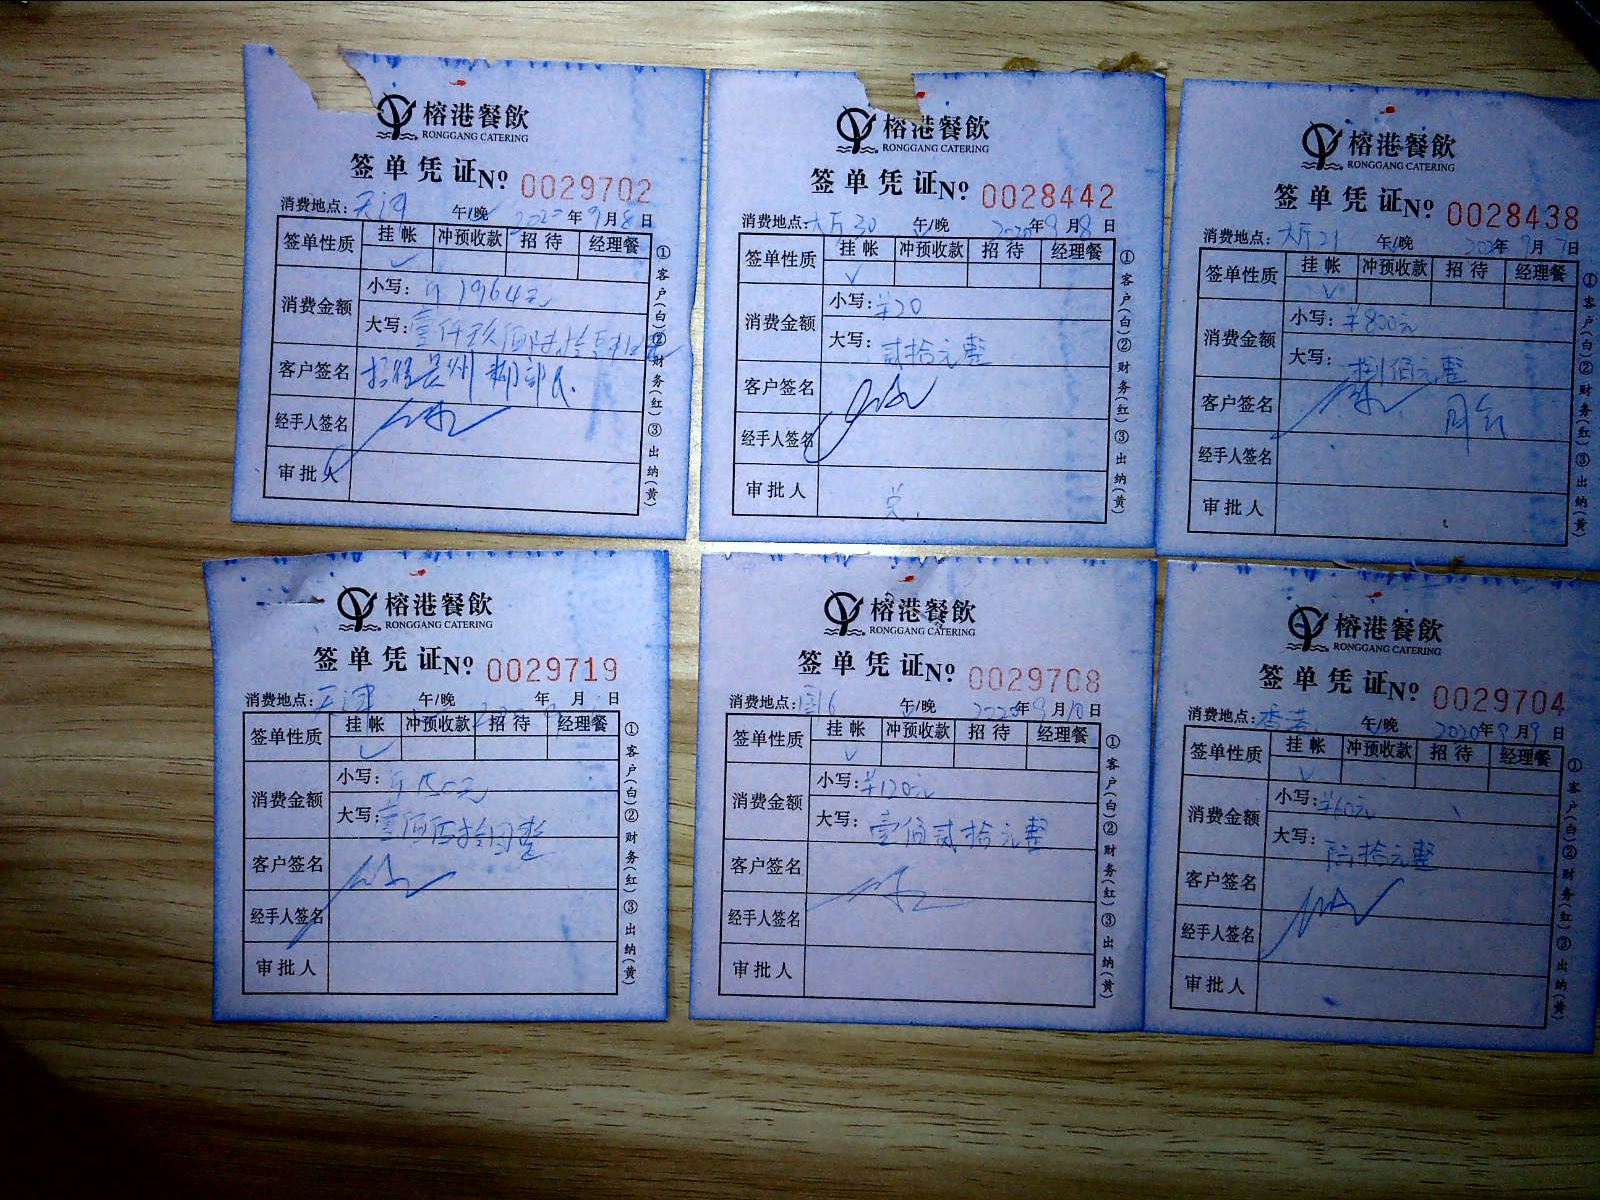 榕港餐飲
RONGGANG CATERING
签单凭证 Nº 0029702
消费地点: 天河 午/晚 2020年9月8日
签单性质 挂帐 冲预收款 招待 经理餐
✓
消费金额 小写: 1964元
大写: 壹仟玖佰陆拾
客户签名
经手人签名
审批人
①客户(白)②财务(红)③出纳(黄)
榕港餐飲
RONGGANG CATERING
签单凭证 Nº 0028442
消费地点: 大厅30 午/晚 2020年9月8日
签单性质 挂帐 冲预收款 招待 经理餐
✓
消费金额 小写: ¥20
大写: 贰拾元整
客户签名
经手人签名
审批人
①客户(白)②财务(红)③出纳(黄)
榕港餐飲
RONGGANG CATERING
签单凭证 Nº 0028438
消费地点: 大厅21 午/晚 2020年9月7日
签单性质 挂帐 冲预收款 招待 经理餐
✓
消费金额 小写: ¥800元
大写: 捌佰元整
客户签名
经手人签名
审批人
①客户(白)②财务(红)③出纳(黄)
榕港餐飲
RONGGANG CATERING
签单凭证 Nº 0029719
消费地点: 天津 午/晚 年 月 日
签单性质 挂帐 冲预收款 招待 经理餐
✓
消费金额 小写: 150元
大写: 壹佰伍拾圆整
客户签名
经手人签名
审批人
①客户(白)②财务(红)③出纳(黄)
榕港餐飲
RONGGANG CATERING
签单凭证 Nº 0029708
消费地点: 16 午/晚 2020年9月10日
签单性质 挂帐 冲预收款 招待 经理餐
✓
消费金额 小写: ¥120元
大写: 壹佰贰拾元整
客户签名
经手人签名
审批人
①客户(白)②财务(红)③出纳(黄)
榕港餐飲
RONGGANG CATERING
签单凭证 Nº 0029704
消费地点: 香港 午/晚 2020年9月9日
签单性质 挂帐 冲预收款 招待 经理餐
✓
消费金额 小写: ¥60元
大写: 陆拾元整
客户签名
经手人签名
审批人
①客户(白)②财务(红)③出纳(黄)